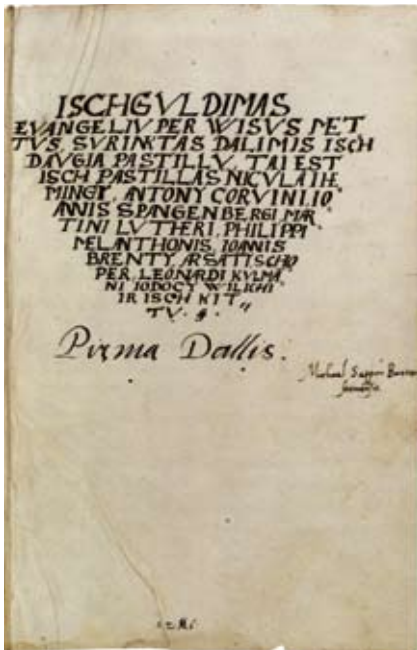 ISCHGVLDIMAS
EVANGELIV PER WISVS MET
TVS, SVRINKTAS DALIMIS ISCH
DAVGIA PASTILLV, TAI EST
ISCH PASTILLAS NICVLAI HE
MINGY, ANTONY CORVINI, IO
ANNIS SPANGENBERGI, MAR
TINI LVTHERI, PHILIPPI
MELANTHONIS, IOANNIS
BRENTY, ARSATISCHO
PER, LEONARDI KVLMA
NI IODOCY WILICHI
IR ISCH KIT
TV.
Pirma Dallis.
Michael